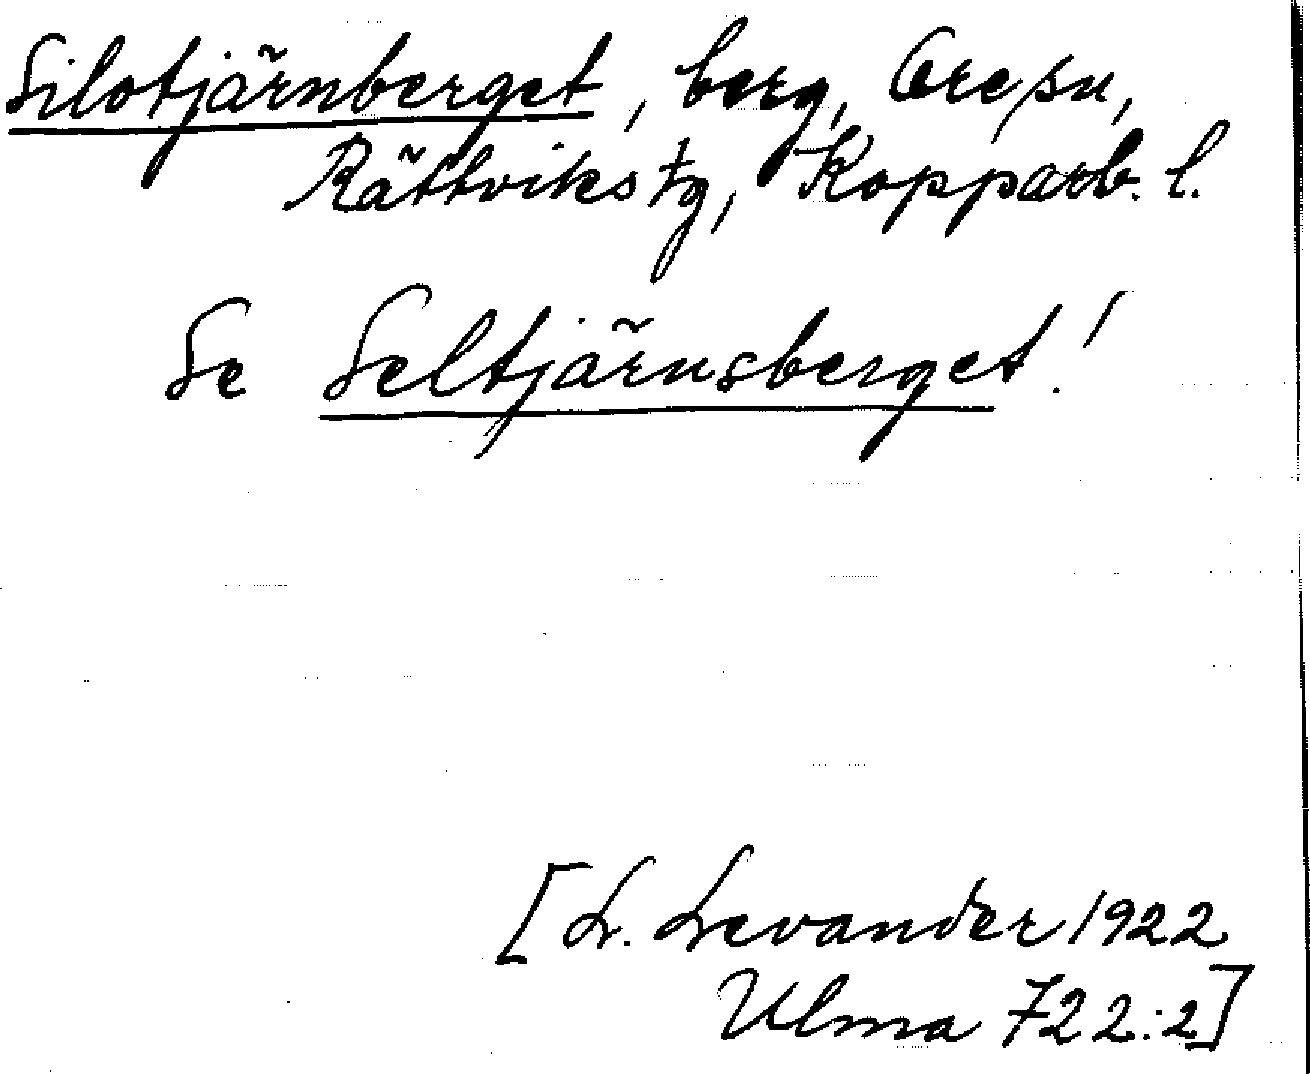 Silotjärnberget, berg, Ore sn,
Rättviks tg, Kopparb. l.
Se Seltjärnsberget!
[L. Levander 1922
Ulma 722:2]